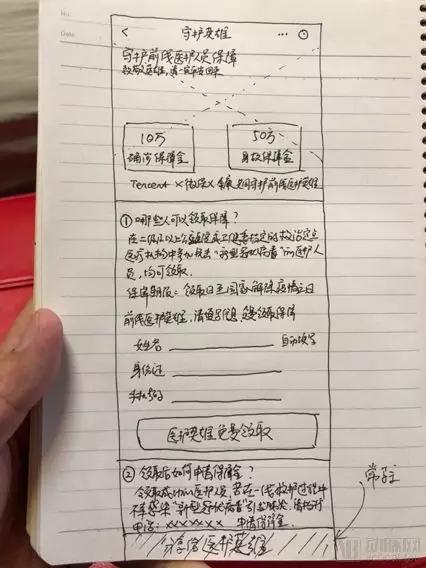 No:
Date
< 守护英雄 ... ⊙
守护前线医护人员保障
致敬英雄,请一定平安回来
10万
确诊保障金
50万
身故保障金
Tencent × 微保 × 共同守护前线医护英雄
① 哪些人可以领取保障?
在二级及以上公立医院或卫健委指定的救治定点
医疗机构中参加救治“新型冠状病毒”的医护人
员,均可领取.
保障期限:领取日至国家解除疫情之日
前线医护英雄,请填写信息,免费领取保障
姓名 自动填写
身份证
手机号码
医护英雄免费领取
② 领取后如何申请保障金?
领取成功的医护人员 若在一线救护过程中
不幸感染“新型冠状病毒”引致肺炎,请拨打
电话:××××××× 申请保障金.
分享给医护英雄
常驻